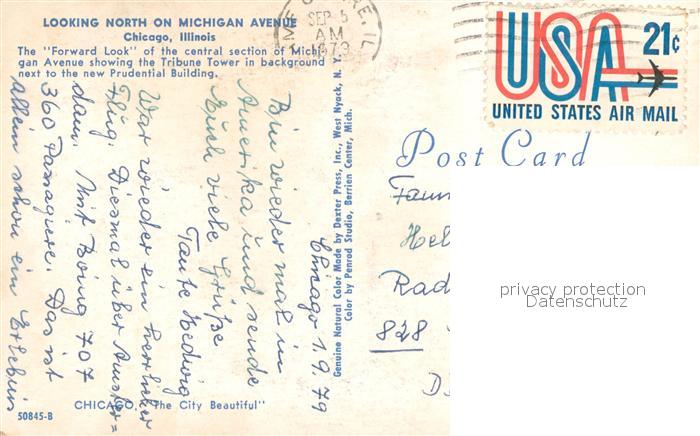 LOOKING NORTH ON MICHIGAN AVENUE
Chicago, Illinois
The "Forward Look" of the central section of Michi-
gan Avenue showing the Tribune Tower in background
next to the new Prudential Building.
SEP 5
AM
1979
USA
21¢
UNITED STATES AIR MAIL
Post Card
Chicago 1.9.79
Bin wieder mal in
Amerika und sende
Euch viele Grüße
Tante Hedwig
War wieder ein herrlicher
Flug. Diesmal über Amster=
dam. Mit Boing 707
360 Passagiere. Das ist
allein schon ein Erlebnis
Genuine Natural Color Made by Dexter Press, Inc., West Nyack, N. Y.
Color by Penrod Studio, Berrien Center, Mich.
Fam
Hel
Rad
828
D
privacy protection
Datenschutz
CHICAGO, "The City Beautiful"
50845-B